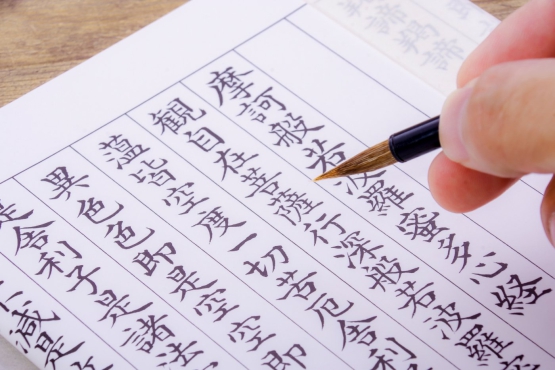 摩訶般若波羅蜜多心経
観自在菩薩行深般若波羅
蘊皆空度一切苦厄舎利
異色色即是空空即
是舎利子是諸法
減是
諦羯諦